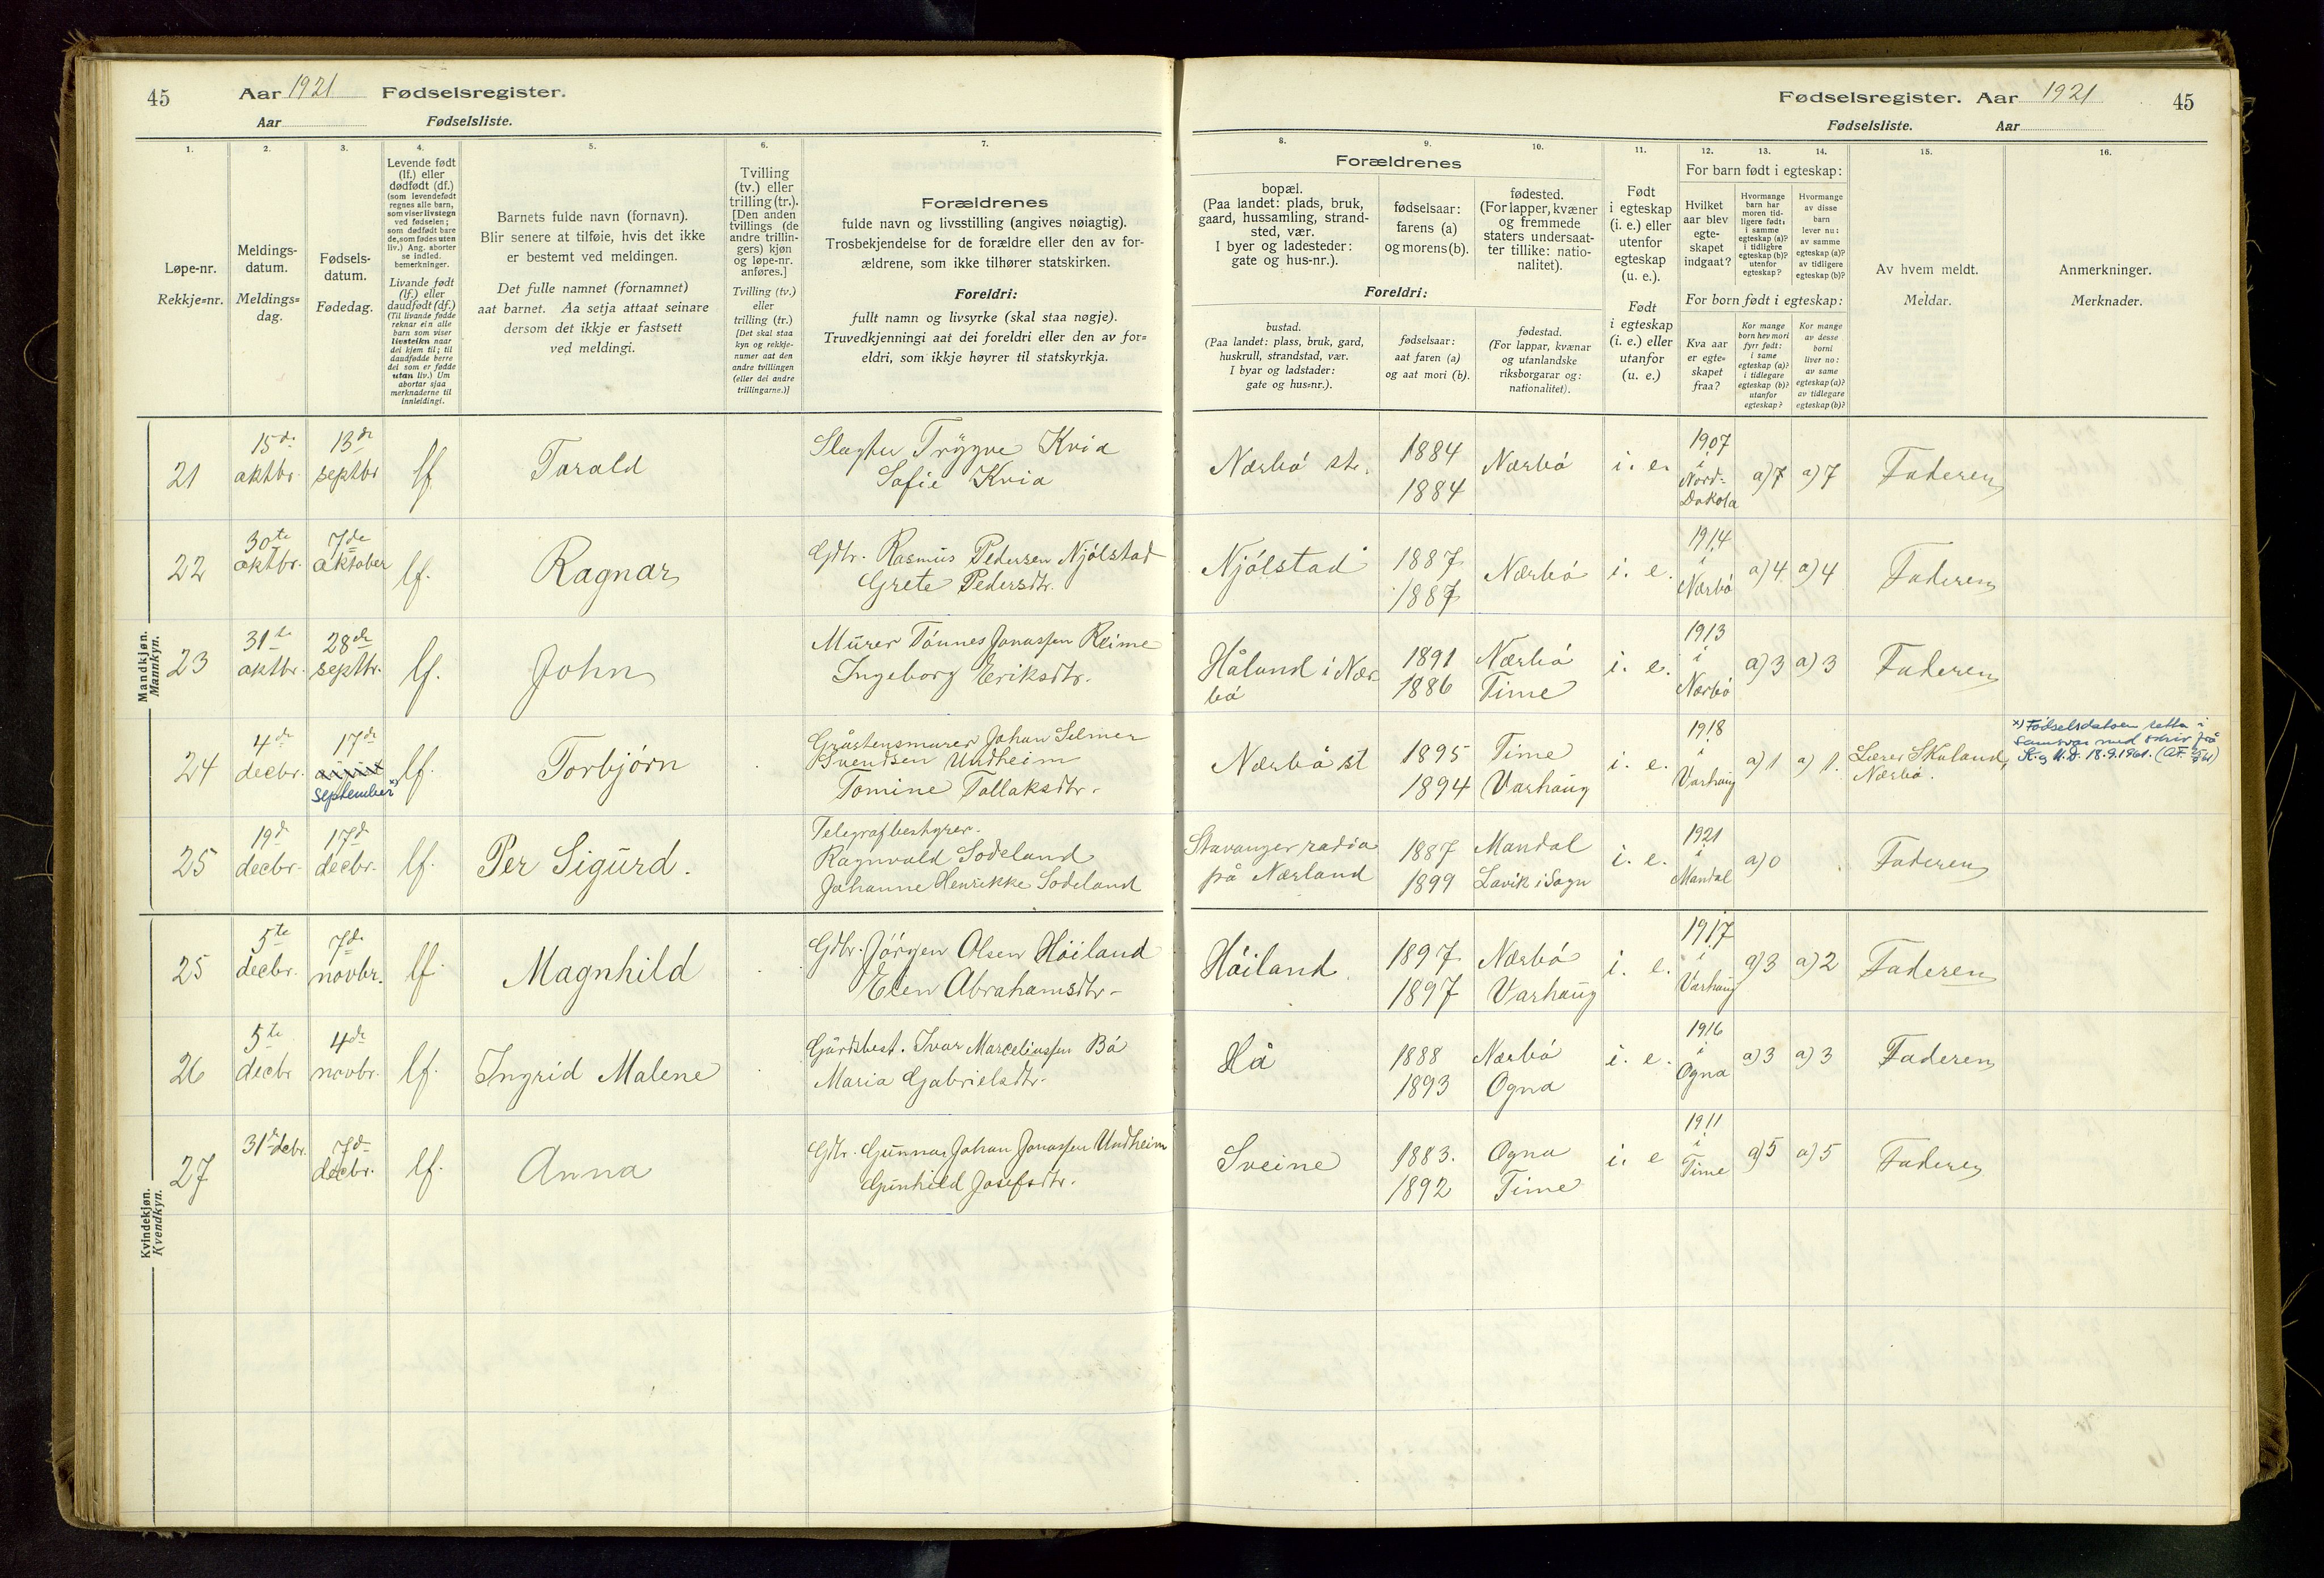 45 Aar 1921 Fødselsregister.
Aar Fødselsliste.
1. 2. 3. 4. 5. 6. 7.
Løpe-nr.
Rekkje=nr.
Meldings-
datum.
Meldings=
dag.
Fødsels-
datum.
Fødedag.
Levende født
(lf.) eller
dødfødt (df.)
(som levendefødt
regnes alle barn,
som viser livstegn
ved fødselen;
som dødfødt bare
de, som fødes uten
liv.) Ang. aborter
se indled.
bemerkninger.
Livande født
(lf.) eller
daudfødt (df.)
(Til livande fødde
reknar ein alle
barn som viser
livsteikn naar
dei kjem til; til
daudfødde berre
dei som er fødde
utan liv.) Um
abortar sjaa
merknaderne til
innleidingi.
Barnets fulde navn (fornavn).
Blir senere at tilføie, hvis det ikke
er bestemt ved meldingen.
Det fulle namnet (fornamnet)
aat barnet. Aa setja attaat seinare
dersom det ikkje er fastsett
ved meldingi.
Tvilling
(tv.) eller
trilling (tr.).
[Den anden
tvillings (de
andre trillin-
gers) kjøn
og løpe-nr.
anføres.]
Tvilling (tv.)
eller
trilling (tr.)
[Det skal staa
kyn og rekkje-
numer aat den
andre tvillingen
(eller dei andre
trillingarne.)]
Forældrenes
fulde navn og livsstilling (angives nøiagtig).
Trosbekjendelse for de forældre eller den av for-
ældrene, som ikke tilhører statskirken.
Foreldri:
fullt namn og livsyrke (skal staa nøgje).
Truvedkjenningi aat dei foreldri eller den av for=
eldri, som ikkje høyrer til statskyrkja.
Mandkjøn.
Mannkyn.
21 15de oktbr. 13de septbr lf. Torald Slagter Trygve Kvia
Sofie Kvia
22 30te oktbr. 7de oktober lf. Ragnar Gdbr. Rasmus Pedersen Njølstad
Grete Pedersdtr.
23 31te oktbr. 28de septbr. lf. John Murer Tønnes Jonassen Reime
Ingeborg Eriksdtr.
24 4de decbr. 17de september x) lf. Torbjørn Gråstensmurer Johan Selmer
Svendsen Undheim
Tomine Tollaksdtr.
25 19de decbr. 17de decbr. lf. Per Sigurd. Telegrafbestyrer.
Ragnvald Sodeland
Johanne Henrikke Sodeland
Kvindekjøn.
Kvendkyn.
25 5te decbr. 7de novbr. lf. Magnhild Gdbr. Jørgen Olsen Høiland
Elen Abrahamsdtr.
26 5te decbr 4de novbr. lf. Ingrid Malene Gårdsbest. Ivar Marceliussen Bø
Maria Gabrielsdtr.
27 31te decbr. 7de decbr. lf. Anna Gdbr. Gunnar Johan Jonassen Undheim
Gunhild Josefsdtr.
Fødselsregister. Aar 1921 45
Fødselsliste. Aar
8. 9. 10. 11. 12. 13. 14. 15. 16.
Forældrenes
bopæl.
(Paa landet: plads, bruk,
gaard, hussamling, strand-
sted, vær.
I byer og ladesteder:
gate og hus-nr.).
fødselsaar:
farens (a)
og morens (b).
fødested.
(For lapper, kvæner
og fremmede
staters undersaat-
ter tillike: natio-
nalitet).
Foreldri:
bustad.
(Paa landet: plass, bruk, gard,
huskrull, strandstad, vær.
I byar og ladstader:
gate og hus=nr.).
fødselsaar:
aat faren (a)
og aat mori (b).
fødestad.
(For lappar, kvænar
og utanlandske
riksborgarar og:
nationalitet).
Født
i egteskap
(i. e.) eller
utenfor
egteskap
(u. e.).
Født
i egteskap
(i. e.) eller
utanfor
(u. e.)
For barn født i egteskap:
Hvilket
aar blev
egte-
skapet
indgaat?
Hvormange
barn har
moren tid-
ligere født:
i samme
egteskap (a)?
i tidligere
egteskap (b)?
utenfor
egteskap?
Hvormange
av disse
barn
lever nu:
av samme
egteskap (a)?
av tidligere
egteskap (b)?
For born født i egteskap:
Kva aar
er egte=
skapet
fraa?
Kor mange
born hev mori
fyrr født:
i same
egteskap (a)?
i tidlegare
egteskap (b)?
utanfor
egteskap?
Kor mange
av desse
borni
liver no:
av same
egteskap (a)?
av tidlegare
egteskap (b)?
Av hvem meldt.
Meldar.
Anmerkninger.
Merknader.
Nærbø st. 1884 1884 Nærbø i. e. 1907 i Nord-Dakota a) 7 a) 7 Faderen
Njølstad 1887 1887 Nærbø i. e. 1914 i Nærbø a) 4 a) 4 Faderen
Håland i Nær-
bø 1891 1886 Nærbø Time i. e. 1913 i Nærbø a) 3 a) 3 Faderen
Nærbø st 1895 1894 Time Varhaug i. e. 1918 i Varhaug a) 1 a) 1. Lærer Skuland,
Nærbø.
x) Fødselsdatoen retta i
samsvar med skriv frå
K. og U.D. 18.9.1961.
Stavanger radio
på Nærland 1887 1899 Mandal Lavik i Sogn i. e. 1921 i Mandal a) 0 Faderen
Høiland 1897 1897 Nærbø Varhaug i. e. 1917 i Varhaug a) 3 a) 2 Faderen
Hå 1888 1893 Nærbø Ogna i. e. 1916 i Ogna a) 3 a) 3 Faderen
Sveine 1883. 1892 Ogna Time i. e 1911 i Time a) 5 a) 5 Faderen